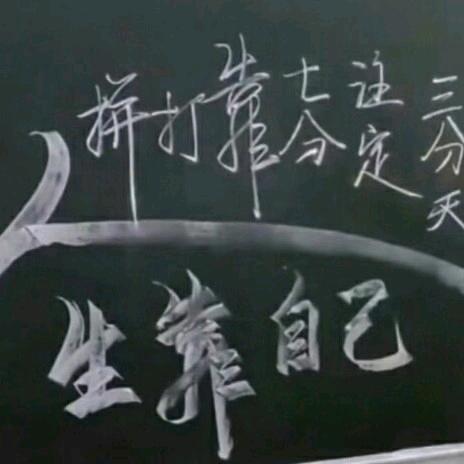 三分天
注定
七分
靠
打
拼
人生靠自己